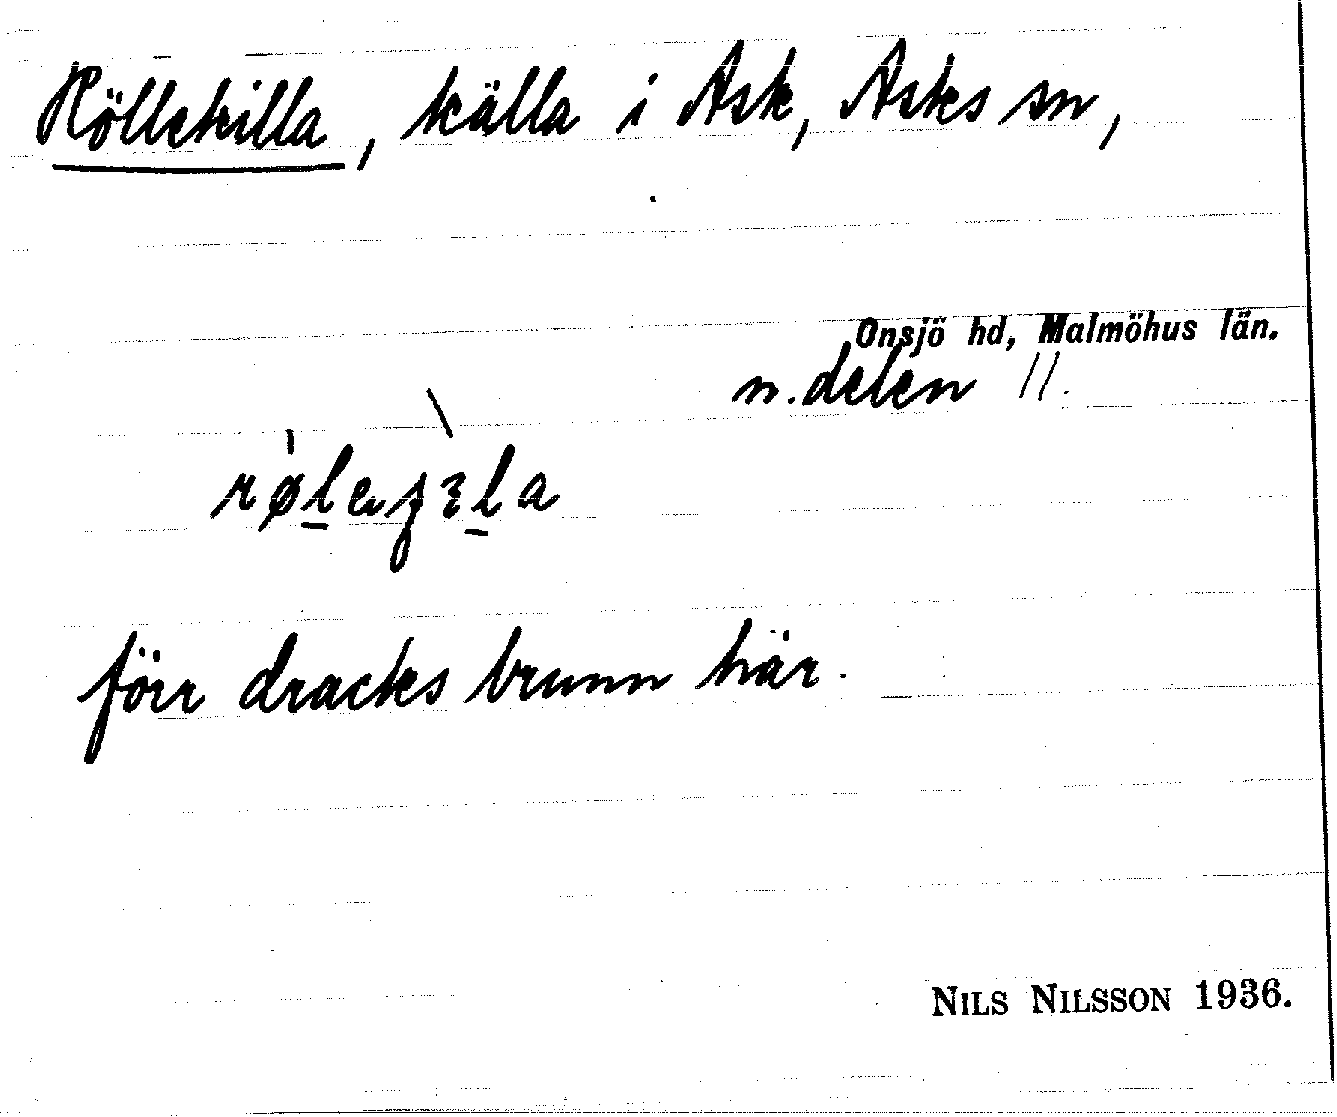 Röllekilla, källa i Ask, Asks sn,
Onsjö hd, Malmöhus län.
n. delen 11.
förr dracks brunn här.
NILS NILSSON 1936.